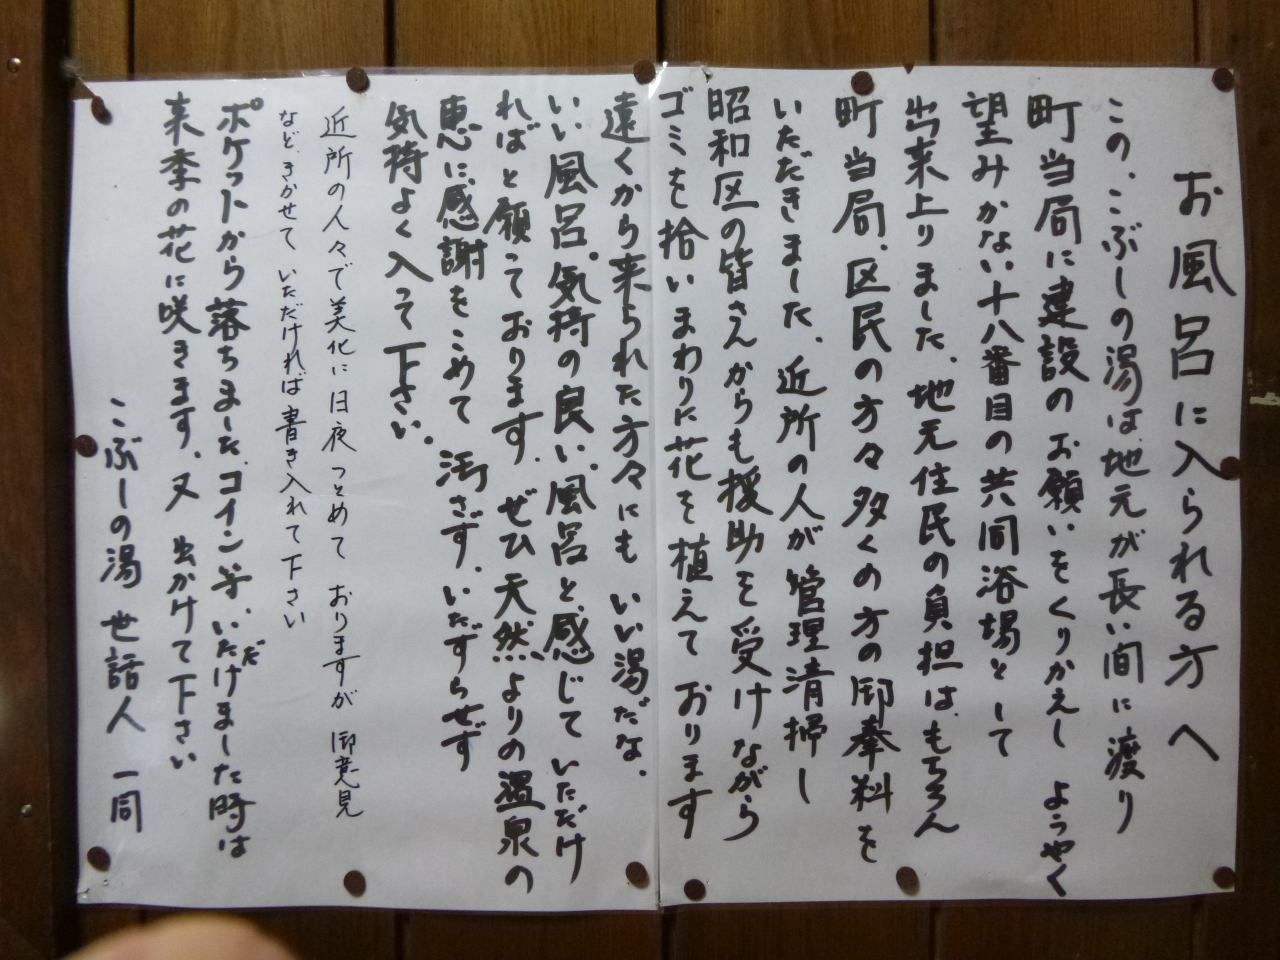 お風呂に入られる方へ
この、こぶしの湯は、地元が長い間に渡り
町当局に建設のお願いをくりかえし ようやく
望みかない十八番目の共同浴場として
出来上りました。地元住民の負担は、もちろん
町当局、区民の方々多くの方の御奉料を
いただきました。近所の人が管理清掃し
昭和区の皆さんからも援助を受けながら
ゴミを拾いまわりに花を植えております
遠くから来られた方々にも いい湯だな、
いい風呂。気持の良い風呂と感じて いただけ
ればと願っております。ぜひ天然よりの温泉の
恵に感謝をこめて 汚さず、いたずらせず
気持よく入って下さい。
近所の人々で美化に日夜つとめて おりますが 御意見
など、きかせて いただければ書き入れて下さい
ポケットから落ちました、コイン等、いただけました時は
来季の花に咲きます、又 出かけて下さい
こぶしの湯 世話人 一同